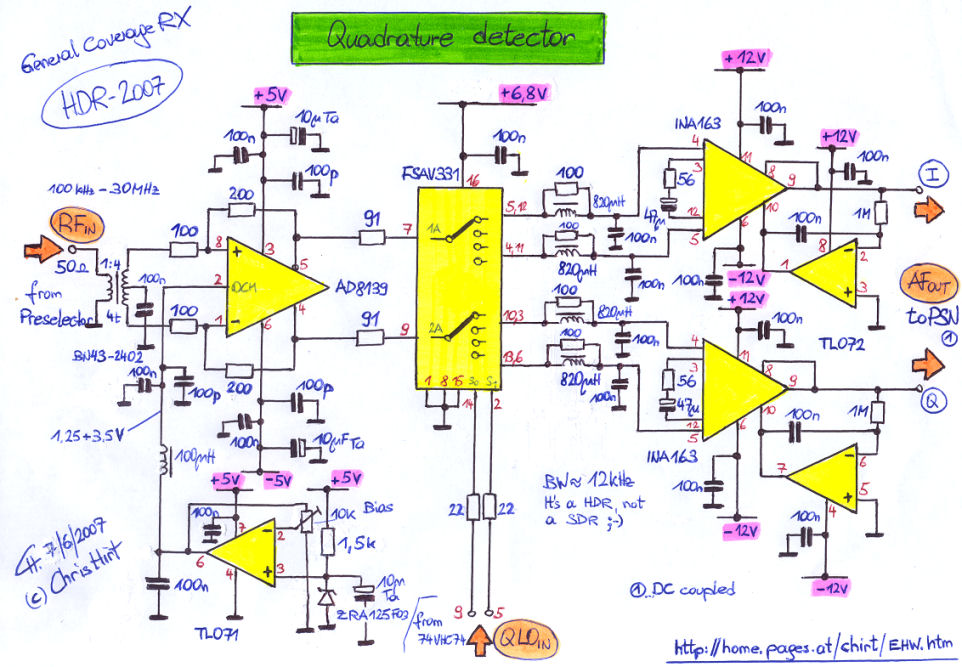 General Coverage RX
HDR-2007
Quadrature detector
+5V
100n
10µ Ta
100p
200
100 kHz - 30MHz
RF IN
50Ω
from
Preselector
1:4
4t
BN43-2402
100n
100
100
8
2
1
+
-
OCM
3
5
4
6
AD8139
200
91
91
100n
100p
100p
100n
10µF Ta
-5V
1,25÷3,5V
100µH
+5V
+5V
100n
10k Bias
1,5k
7
2
3
6
4
-
+
TL071
100n
10µ
Ta
ZRA125F03
+6,8V
100n
FSAV331
16
7
1A
9
2A
5,12
4,11
10,3
13,6
1 8 15 S0 S1
14 2
22
22
9 5
from
74VHC74
QLO IN
100
820µH
100
820µH
100n
100n
100
820µH
100
820µH
100n
100n
+12V
100n
INA163
4
3
56
47µ
12
5
11
8
9
10
6
100n
-12V
+12V
100n
+12V
100n
I
1M
100n
8
2
1
3
-
+
TL072
AF OUT
to PSN
①
4
3
56
47µ
12
5
11
8
9
10
6
INA163
100n
-12V
Q
1M
100n
6
7
5
4
-
+
100n
-12V
BW ≈ 12kHz
It's a HDR, not
a SDR ;-)
① .. DC coupled
CH. 7/6/2007
(c) Chris Hirt
http://home.pages.at/chirt/EHW.htm